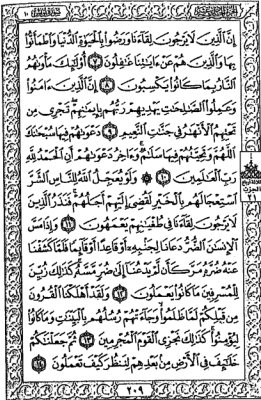 إِنَّ ٱلَّذِينَ لَا يَرۡجُونَ لِقَآءَنَا وَرَضُواْ بِٱلۡحَيَوٰةِ ٱلدُّنۡيَا وَٱطۡمَأَنُّواْ
بِهَا وَٱلَّذِينَ هُمۡ عَنۡ ءَايَٰتِنَا غَٰفِلُونَ ٧ أُوْلَٰٓئِكَ مَأۡوَىٰهُمُ
ٱلنَّارُ بِمَا كَانُواْ يَكۡسِبُونَ ٨ إِنَّ ٱلَّذِينَ ءَامَنُواْ
وَعَمِلُواْ ٱلصَّٰلِحَٰتِ يَهۡدِيهِمۡ رَبُّهُم بِإِيمَٰنِهِمۡۖ تَجۡرِي مِن
تَحۡتِهِمُ ٱلۡأَنۡهَٰرُ فِي جَنَّٰتِ ٱلنَّعِيمِ ٩ دَعۡوَىٰهُمۡ فِيهَا سُبۡحَٰنَكَ
ٱللَّهُمَّ وَتَحِيَّتُهُمۡ فِيهَا سَلَٰمٞۚ وَءَاخِرُ دَعۡوَىٰهُمۡ أَنِ ٱلۡحَمۡدُ لِلَّهِ
رَبِّ ٱلۡعَٰلَمِينَ ١٠ وَلَوۡ يُعَجِّلُ ٱللَّهُ لِلنَّاسِ ٱلشَّرَّ
ٱسۡتِعۡجَالَهُم بِٱلۡخَيۡرِ لَقُضِيَ إِلَيۡهِمۡ أَجَلُهُمۡۖ فَنَذَرُ ٱلَّذِينَ
لَا يَرۡجُونَ لِقَآءَنَا فِي طُغۡيَٰنِهِمۡ يَعۡمَهُونَ ١١ وَإِذَا مَسَّ
ٱلۡإِنسَٰنَ ٱلضُّرُّ دَعَانَا لِجَنۢبِهِۦٓ أَوۡ قَاعِدًا أَوۡ قَآئِمٗا فَلَمَّا كَشَفۡنَا
عَنۡهُ ضُرَّهُۥ مَرَّ كَأَن لَّمۡ يَدۡعُنَآ إِلَىٰ ضُرّٖ مَّسَّهُۥۚ كَذَٰلِكَ زُيِّنَ
لِلۡمُسۡرِفِينَ مَا كَانُواْ يَعۡمَلُونَ ١٢ وَلَقَدۡ أَهۡلَكۡنَا ٱلۡقُرُونَ
مِن قَبۡلِكُمۡ لَمَّا ظَلَمُواْ وَجَآءَتۡهُمۡ رُسُلُهُم بِٱلۡبَيِّنَٰتِ وَمَا كَانُواْ
لِيُؤۡمِنُواْۚ كَذَٰلِكَ نَجۡزِي ٱلۡقَوۡمَ ٱلۡمُجۡرِمِينَ ١٣ ثُمَّ جَعَلۡنَٰكُمۡ
خَلَٰٓئِفَ فِي ٱلۡأَرۡضِ مِنۢ بَعۡدِهِمۡ لِنَنظُرَ كَيۡفَ تَعۡمَلُونَ ١٤
٢٠٩